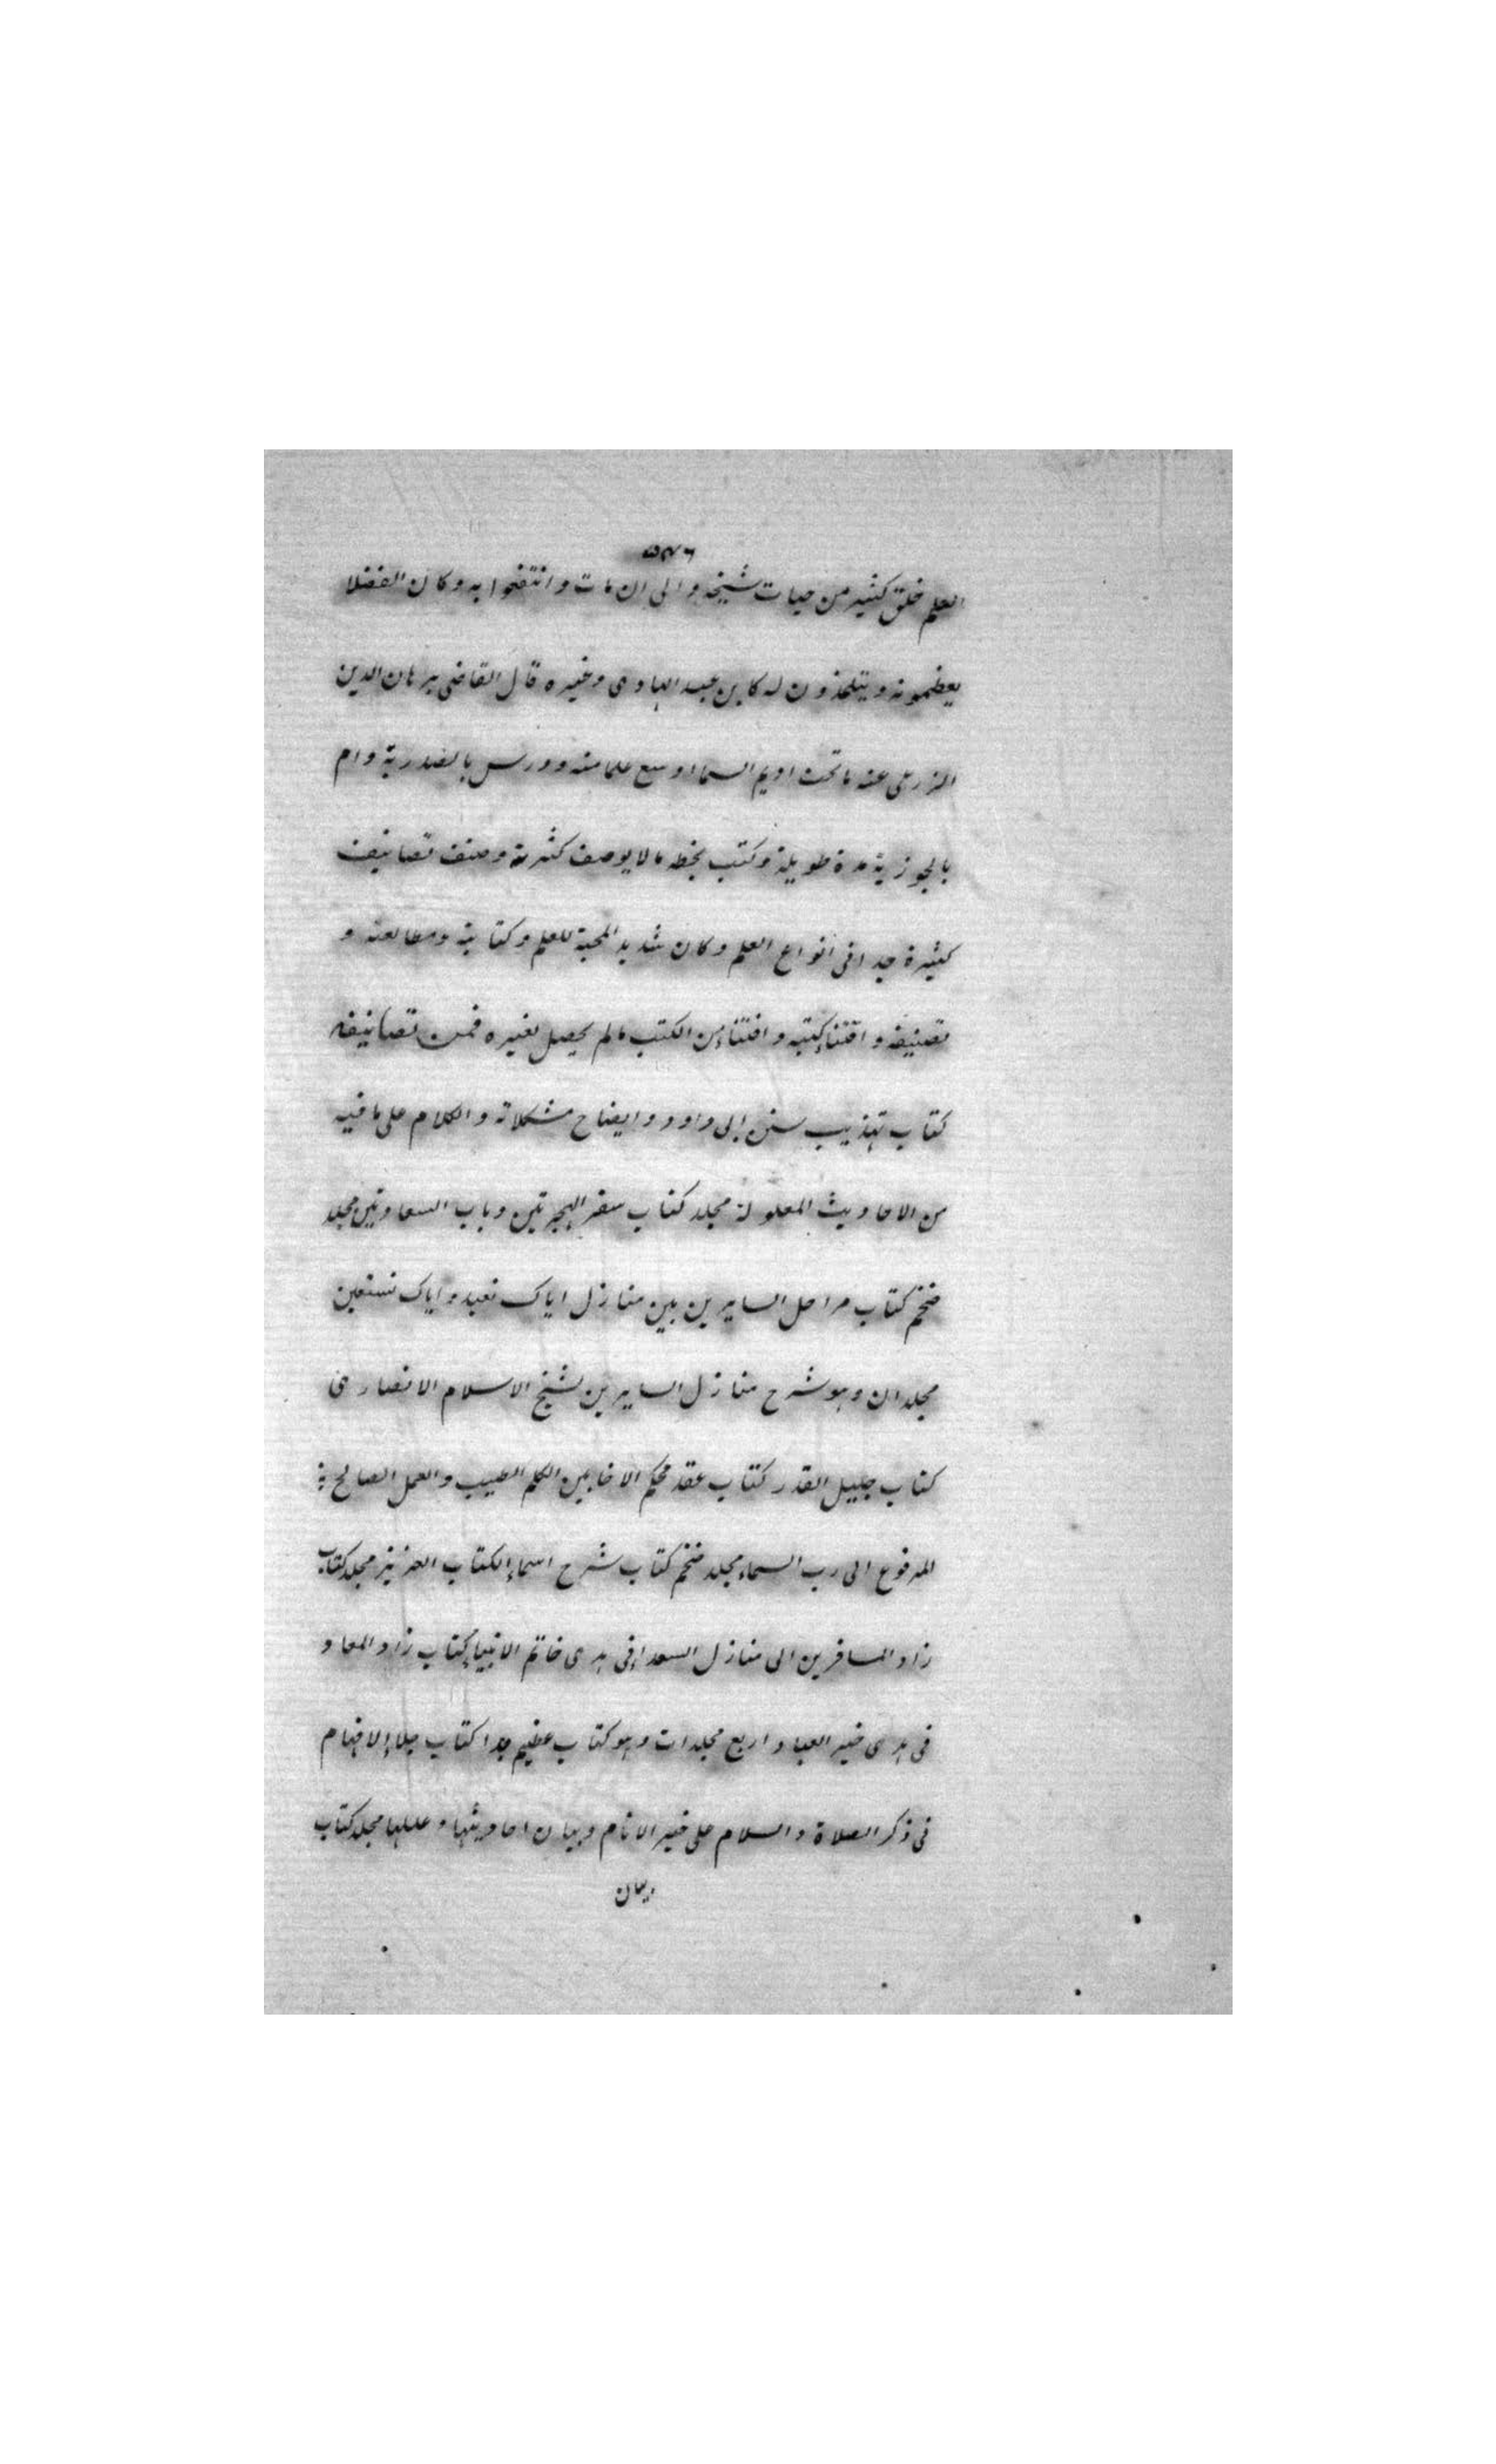 ٥٣٦
العلم خلق كثير من حيات شيخه والى ان مات وانتفعوا به وكان الفضلا
يعظمونه ويتلمذون له كابن عبد الهادى وغيره قال القاضى برهان الدين
الزرعى عنه ما تحت اديم السما اوسع علما منه ودرس بالصدرية وام
بالجوزية مدة طويلة وكتب بخطه ما لا يوصف كثرة وصنف تصانيف
كثيرة جدا فى انواع العلم وكان شديد المحبة للعلم وكتابته ومطالعته و
تصنيفه واقتناء كتبه واقتناء من الكتب ما لم يحصل لغيره فمن تصانيفه
كتاب تهذيب سنن ابى داود وايضاح مشكلاته والكلام على ما فيه
من الاحاديث المعلولة مجلد كتاب سفر الهجرتين وباب السعادتين مجلد
ضخم كتاب مراحل السايرين بين منازل اياك نعبد واياك نستعين
مجلدان وهو شرح منازل السايرين لشيخ الاسلام الانصارى
كتاب جليل القدر كتاب عقد محكم الاخا بين الكلم الطيب والعمل الصالح
المرفوع الى رب السماء مجلد ضخم كتاب شرح اسماء الكتاب العزيز مجلد كتاب
زاد المسافرين الى منازل السعداء فى هدى خاتم الانبياء كتاب زاد المعاد
فى هدى خير العباد اربع مجلدات وهو كتاب عظيم جدا كتاب جلاء الافهام
فى ذكر الصلاة والسلام على خير الانام وبيان احاديثها وعللها مجلد كتاب
بيان